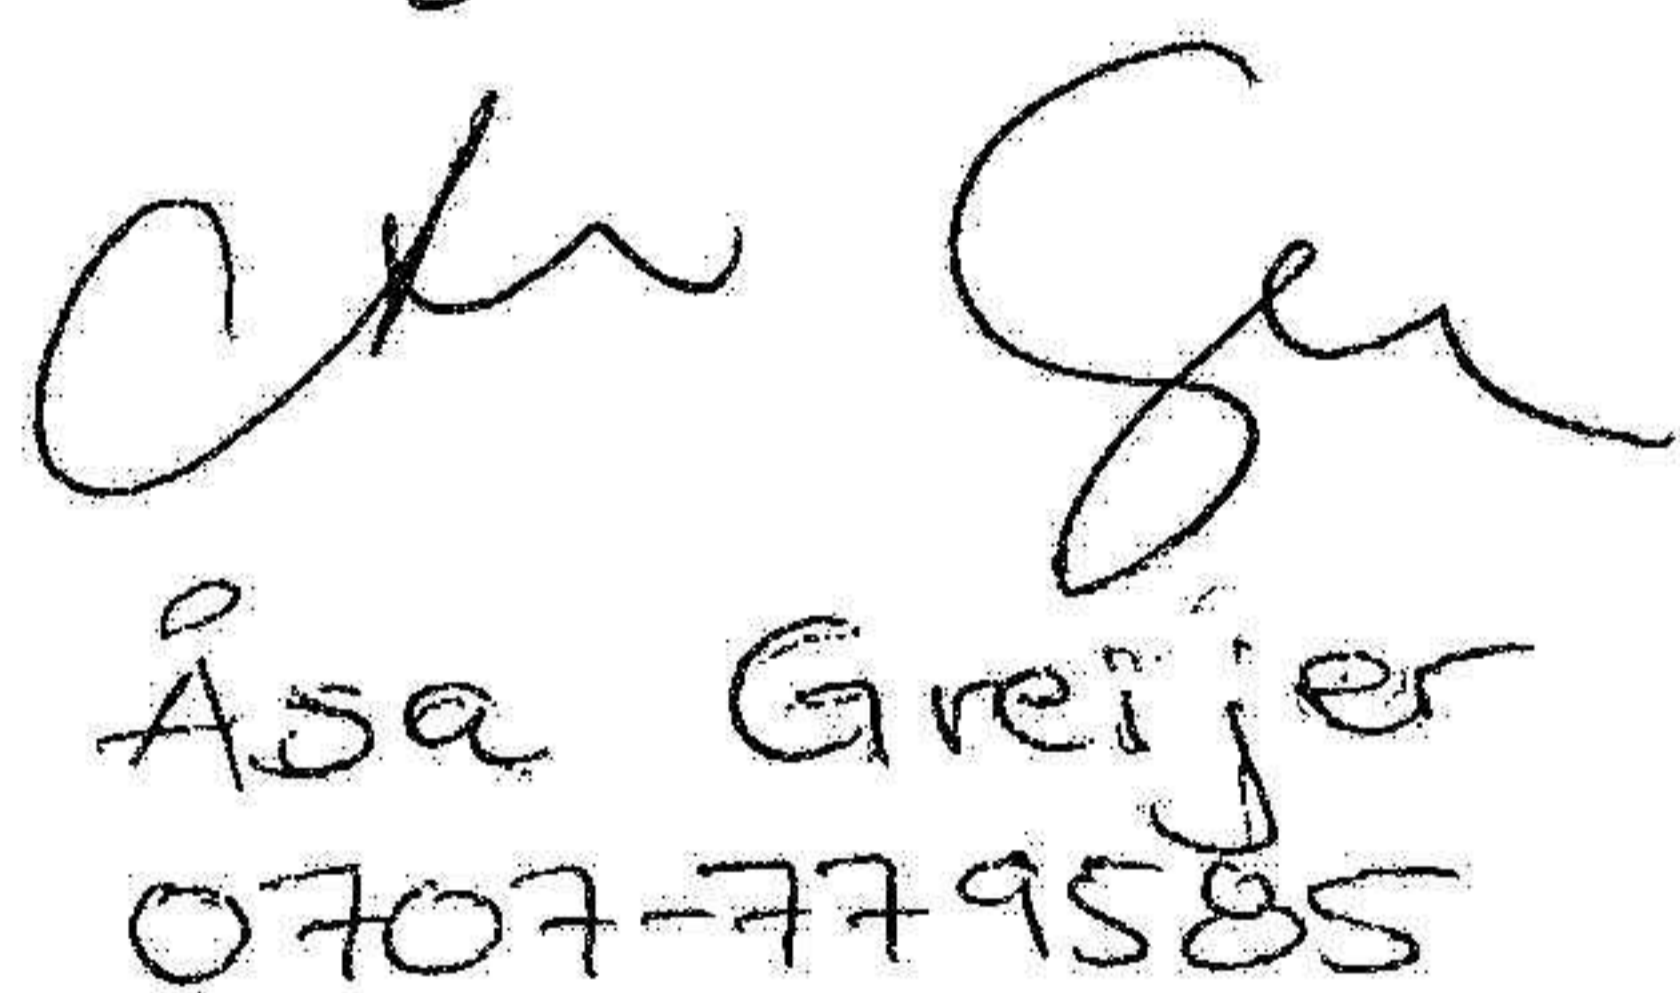 Åsa Greijer
0707-779585